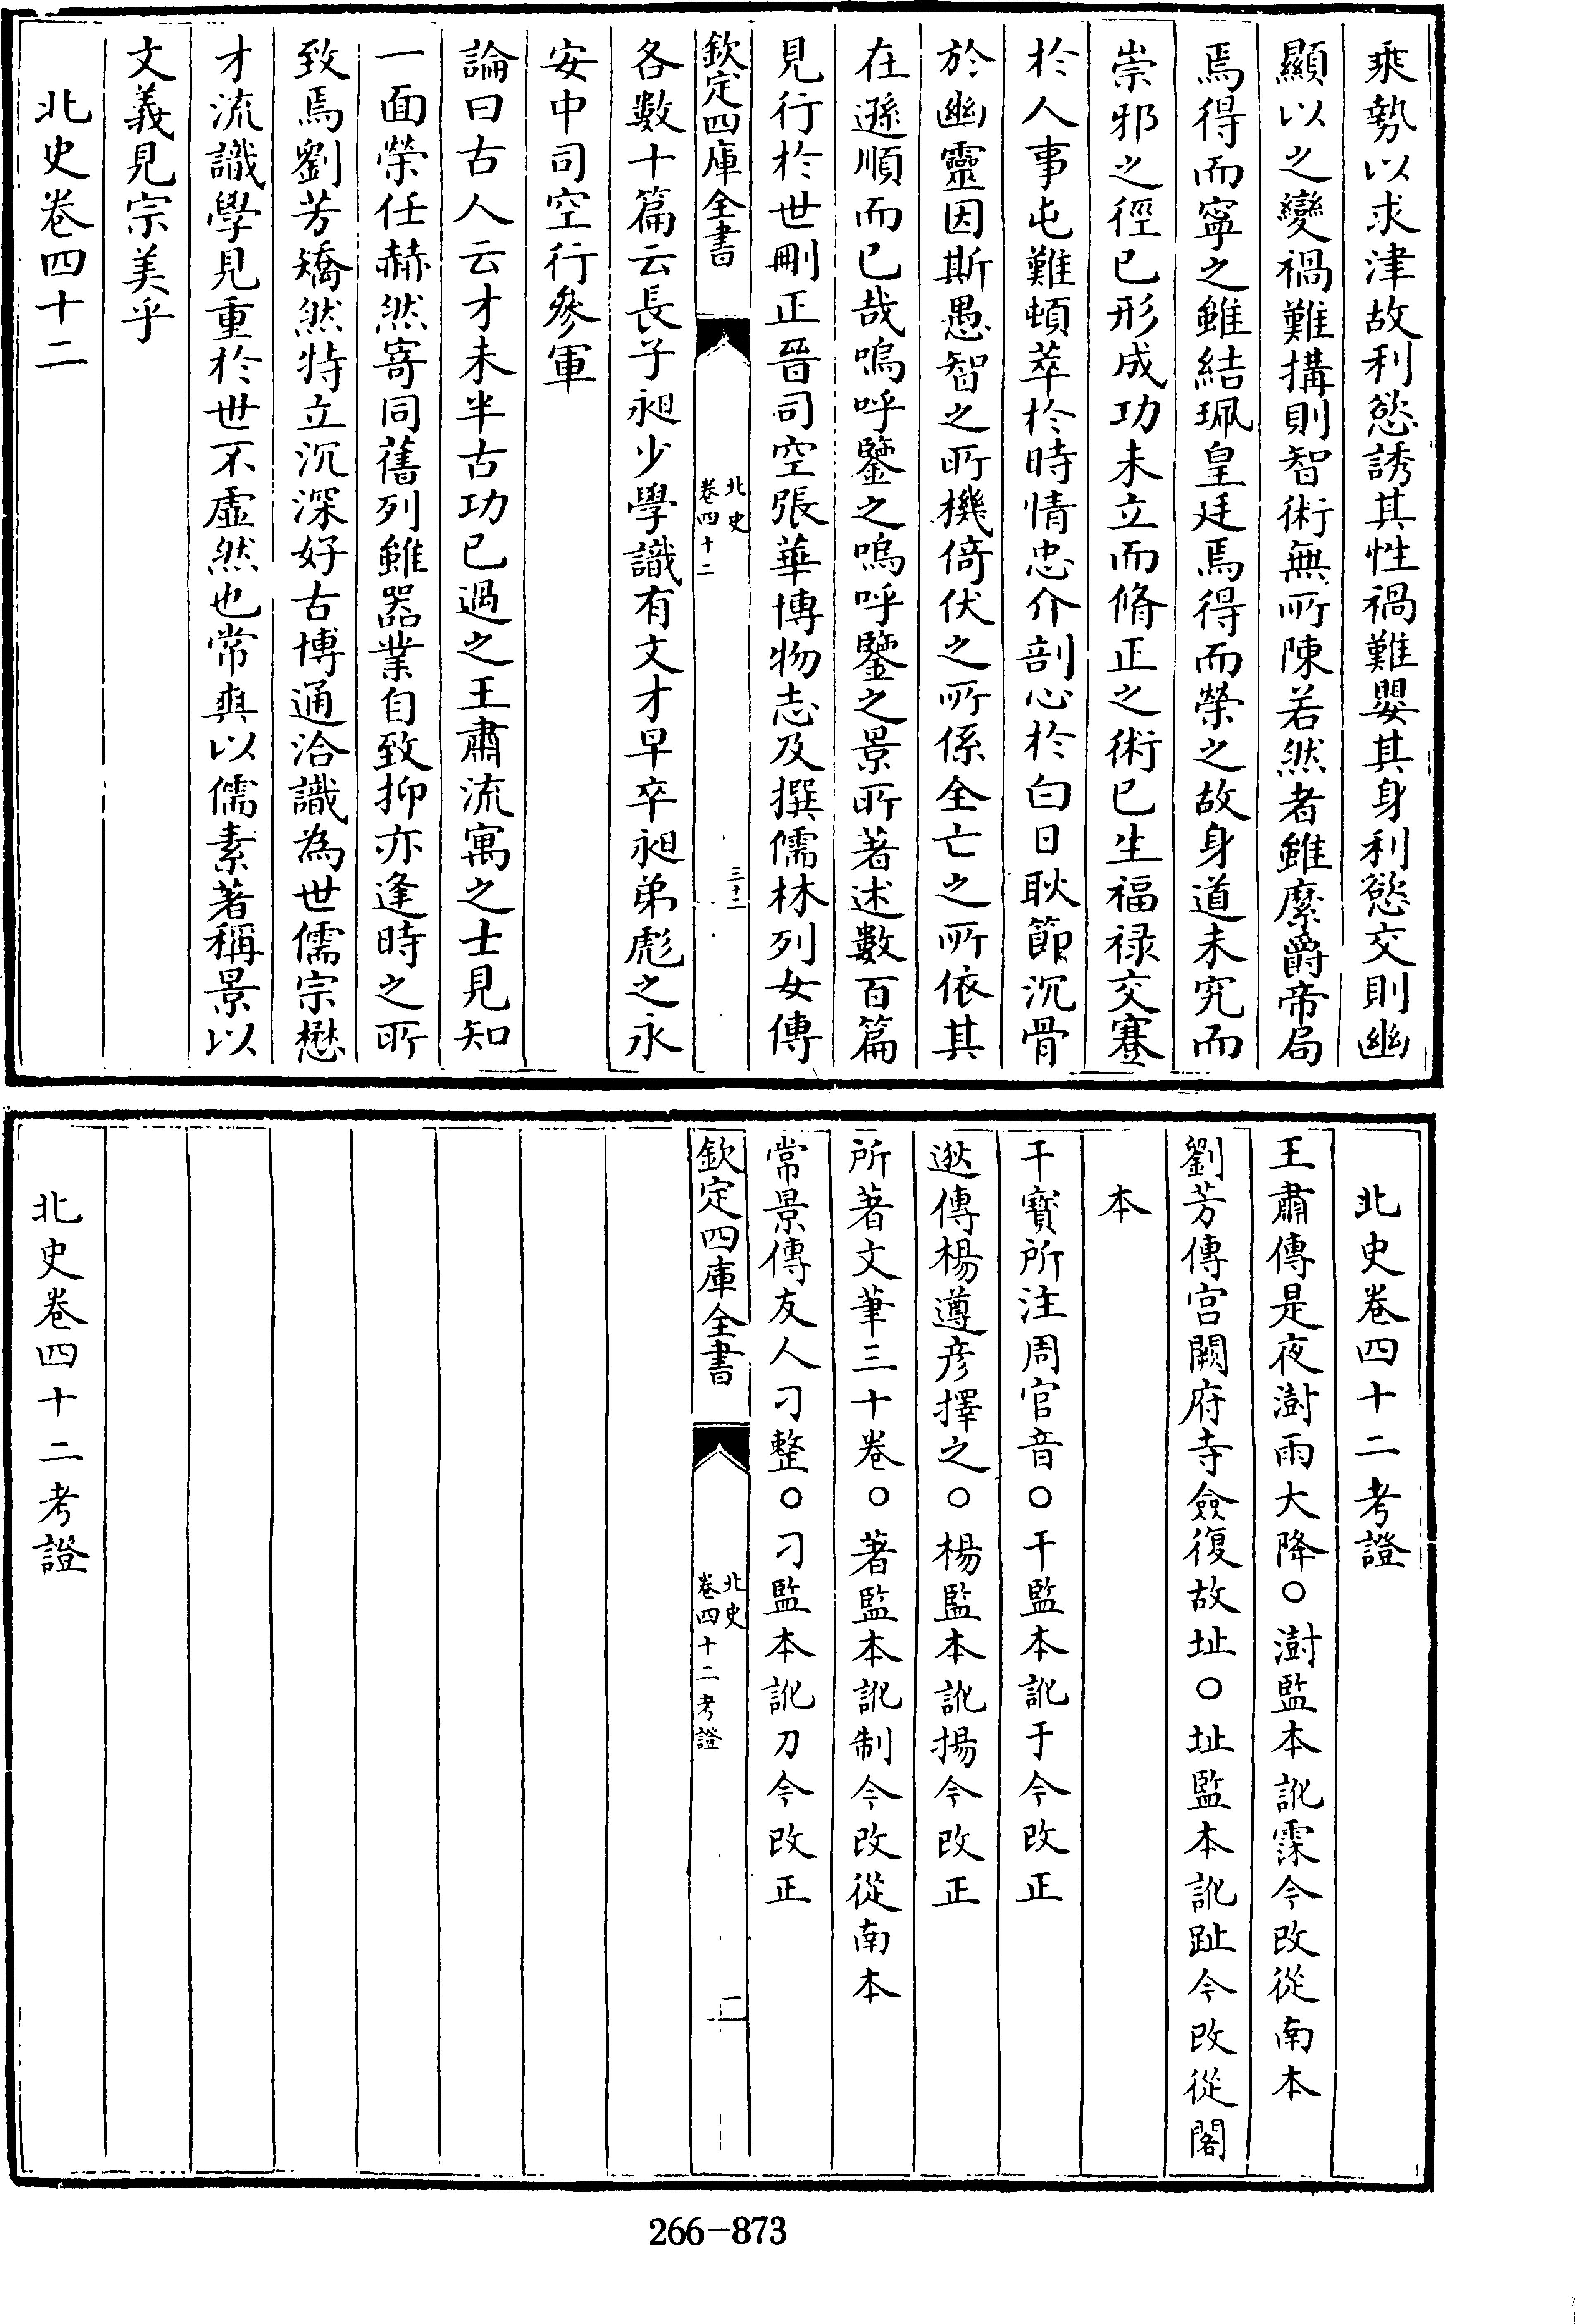 乘勢以求津故利慾誘其性禍難嬰其身利慾交則幽
顯以之變禍難搆則智術無所陳若然者雖縻爵帝局
焉得而寧之雖結珮皇廷焉得而榮之故身道未究而
崇邪之徑已形成功未立而脩正之術已生福禄交蹇
於人事屯難頓萃於時情忠介剖心於白日耿節沉骨
於幽靈因斯愚智之所機倚伏之所係全亡之所依其
在遜順而已哉嗚呼鑒之嗚呼鑒之景所著述數百篇
見行於世刪正晉司空張華博物志及撰儒林列女傳
欽定四庫全書
北史
卷四十二
三十二
各數十篇云長子昶少學識有文才早卒昶弟彪之永
安中司空行參軍
論曰古人云才未半古功已過之王肅流寓之士見知
一面榮任赫然寄同舊列雖器業自致抑亦逢時之所
致焉劉芳矯然特立沉深好古博通洽識為世儒宗懋
才流識學見重於世不虛然也常爽以儒素著稱景以
文義見宗美乎
北史卷四十二
北史卷四十二考證
王肅傳是夜澍雨大降○澍監本訛霂今改從南本
劉芳傳宮闕府寺僉復故址○址監本訛趾今改從閣
本
干寶所注周官音○干監本訛于今改正
逖傳楊遵彥擇之○楊監本訛揚今改正
所著文筆三十卷○著監本訛制今改從南本
常景傳友人刁整○刁監本訛刀今改正
欽定四庫全書
北史
卷四十二考證
一
北史卷四十二考證
266-873